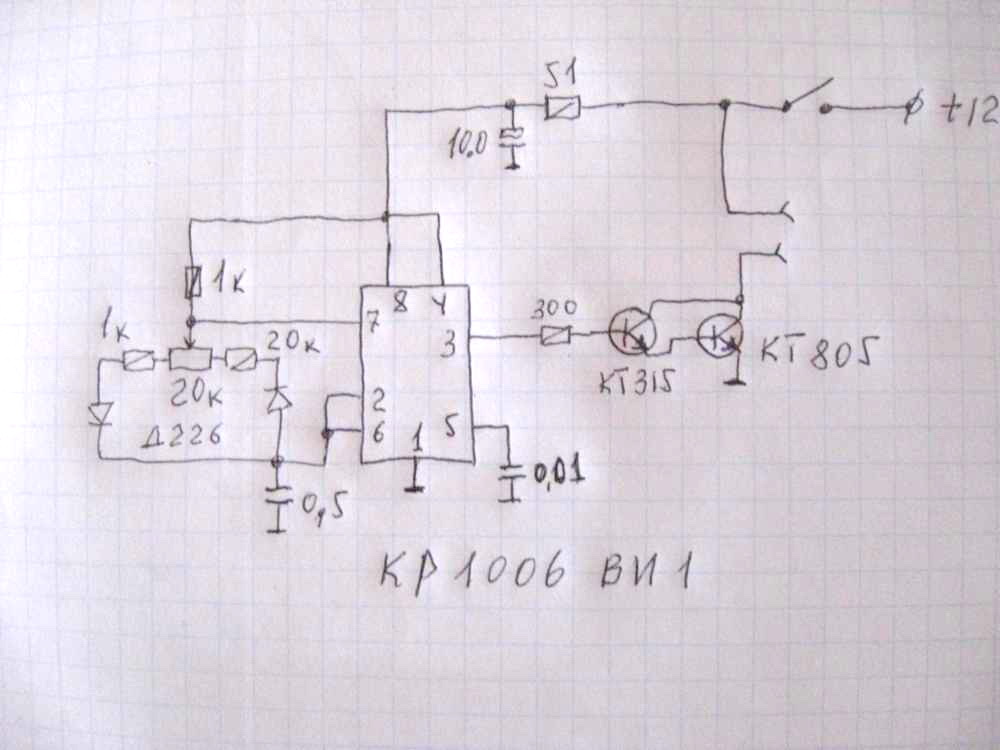 51
+12
10.0
1к
8 4
7
1к
3
300
20к
20к
КТ315
КТ805
2
Д226
6
5
1
0,01
0,5
КР1006ВИ1